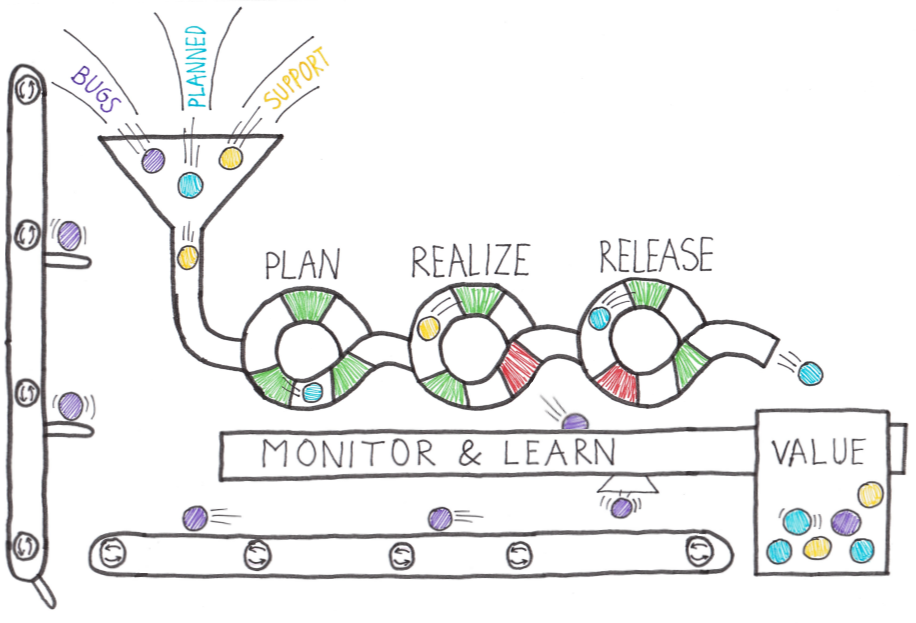 BUGS
PLANNED
SUPPORT
PLAN
REALIZE
RELEASE
MONITOR & LEARN
VALUE